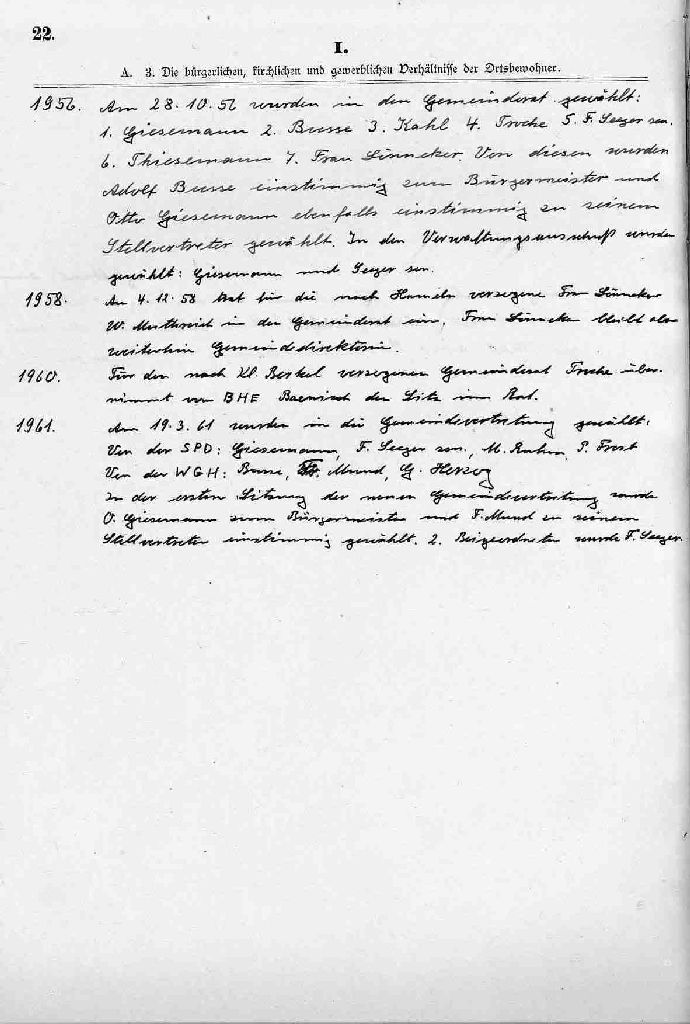 22.
I.
A. 3. Die bürgerlichen, kirchlichen und gewerblichen Verhältnisse der Ortsbewohner.
1956. Am 28.10.56 wurden in den Gemeinderat gewählt:
1. Giesemann 2. Busse 3. Kahl 4. Troche 5. F. Seeger sen.
6. Thiesemann 7. Frau Lönneker. Von diesen wurden
Adolf Busse einstimmig zum Bürgermeister und
Otto Giesemann ebenfalls einstimmig zu seinem
Stellvertreter gewählt. In den Verwaltungsausschuß wurden
gewählt: Giesemann und Seeger sen.
1958. Am 4.12.58 trat für die nach Hameln verzogene Frau Lönneker
W. in den Gemeinderat ein. Frau Lönneker bleibt aber
weiterhin Gemeindedirektorin.
1960. Für den nach Kl. Berkel verzogenen Gemeinderat Troche über-
nimmt vom BHE den Sitz im Rat.
1961. Am 19.3.61 wurden in die Gemeindevertretung gewählt:
Von der SPD: Giesemann, F. Seeger sen., M. P.
Von der WGH: Busse, Fr. Mund, G. Herzog
In der ersten Sitzung der neuen Gemeindevertretung wurde
O. Giesemann zum Bürgermeister und F. Mund zu seinem
Stellvertreter einstimmig gewählt. 2. Beigeordneter wurde F. Seeger